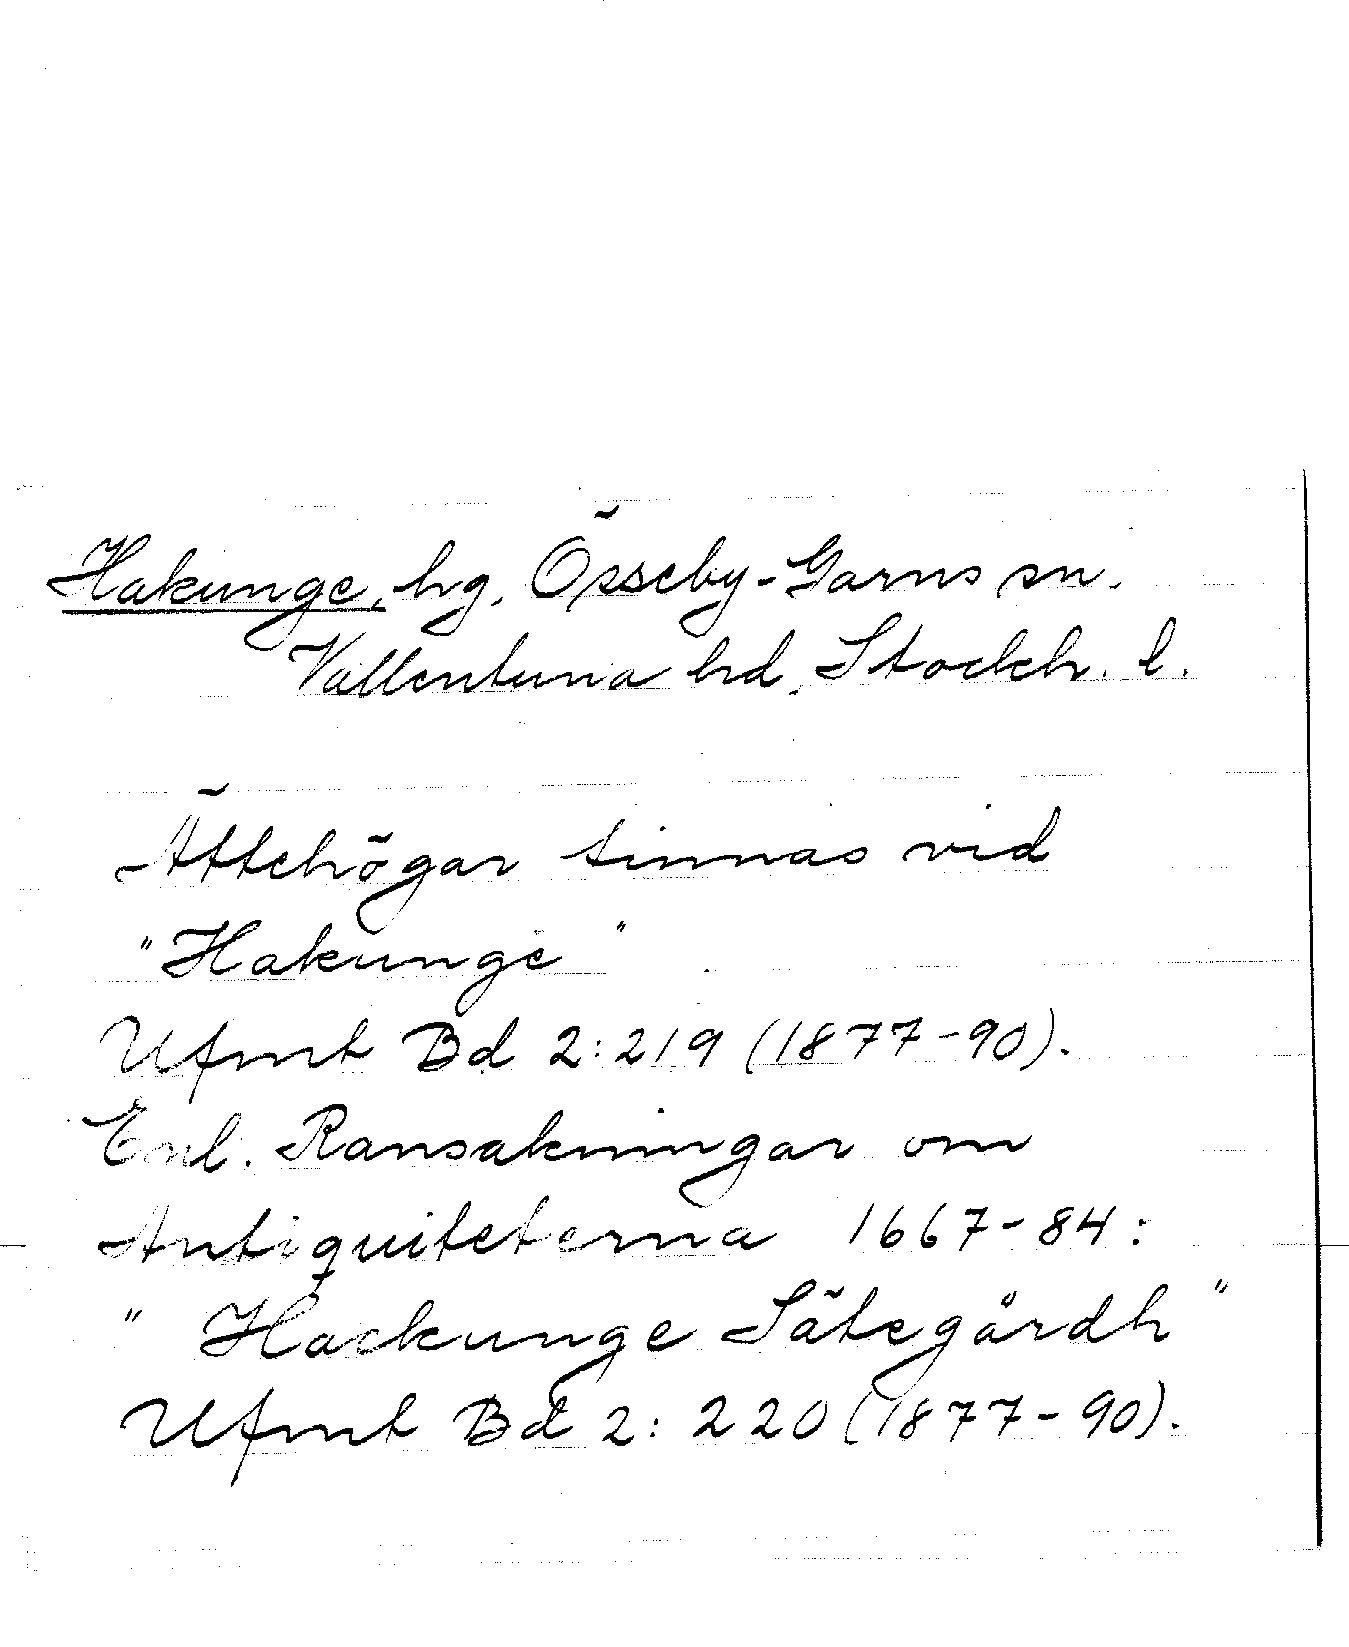 Hakunge, hg, Össeby-Garns sn.
Vallentuna hd, Stockh. l.
Ättehögar finnas vid
"Hakunge"
Ufmt Bd 2:219 (1877-90).
Enl. Ransakningar om
Antiquiteterna 1667-84:
"Hackunge Sätegårdh"
Ufmt Bd 2: 220 (1877-90).